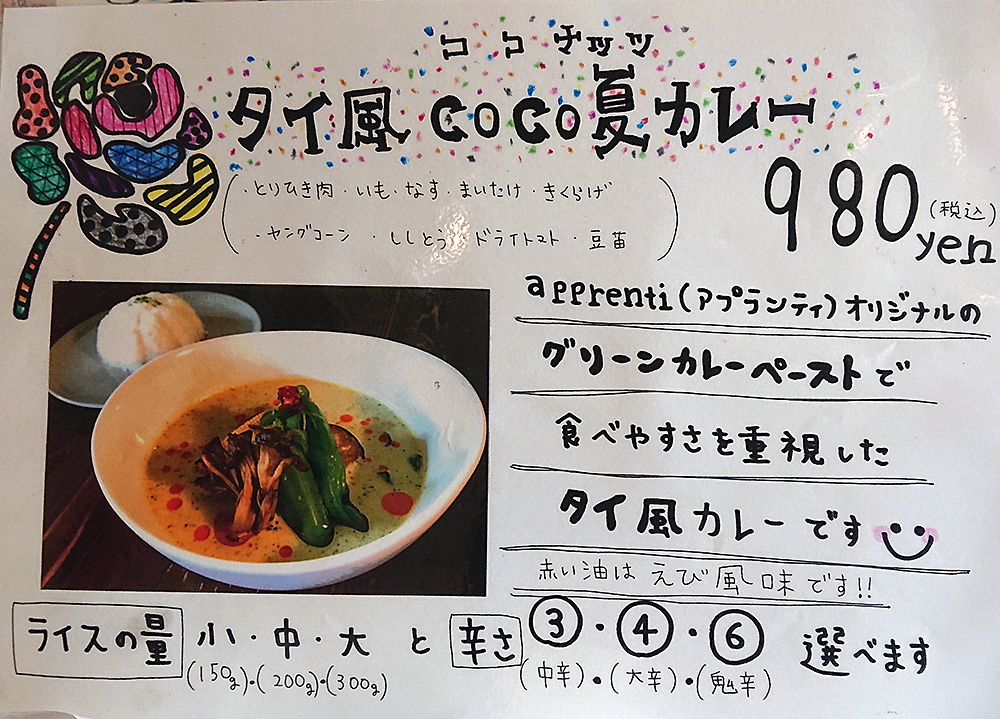 ココナッツ
タイ風 COCO夏カレー
(・とりひき肉・いも・なす・まいたけ・きくらげ
・ヤングコーン ・ ししとう・ドライトマト・豆苗)
980yen(税込)
apprenti(アプランティ)オリジナルの
グリーンカレーペーストで
食べやすさを重視した
タイ風カレーです
赤い油はえび風味です!!
ライスの量 小・中・大 と 辛さ ③・④・⑥ 選べます
(150g)・(200g)・(300g) (中辛)・(大辛)・(鬼辛)